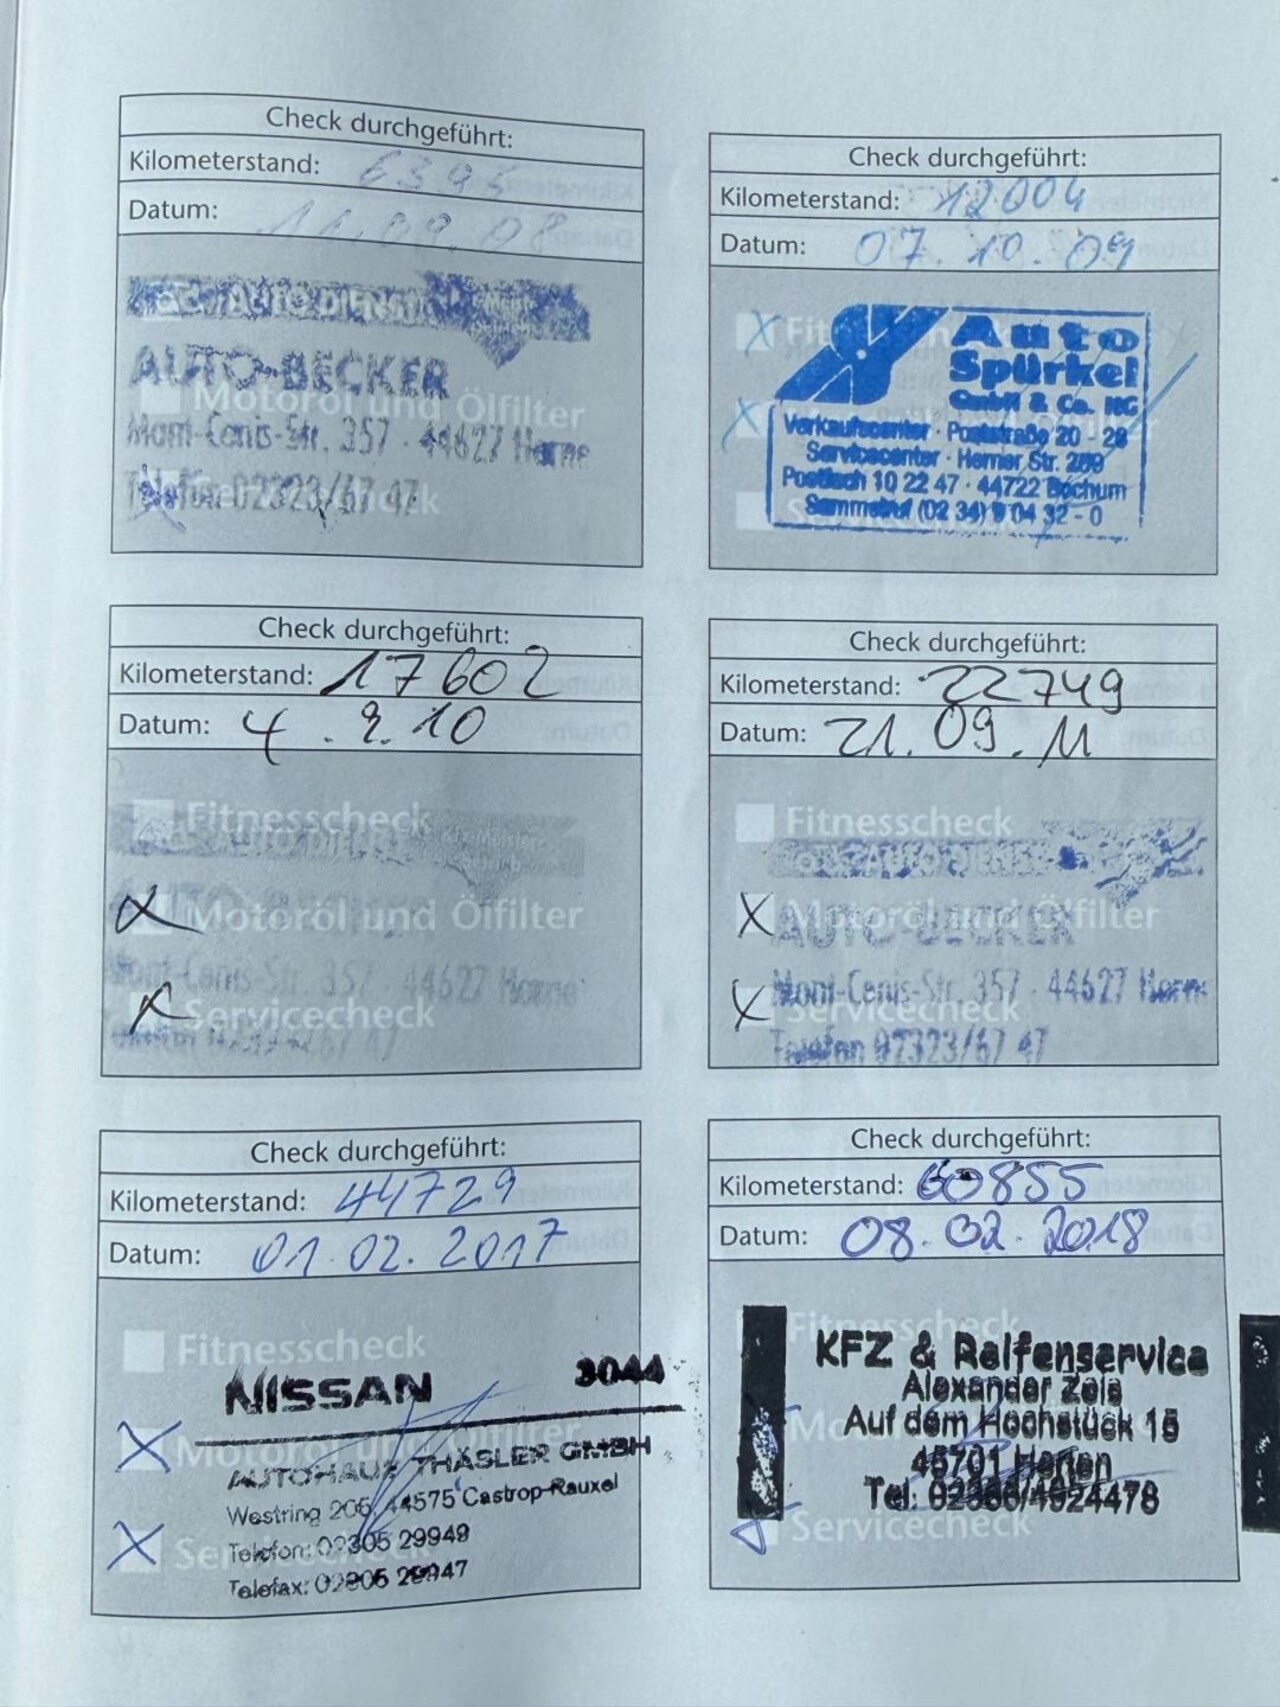 Check durchgeführt:
Kilometerstand: 6395
Datum: 11.09.08
AUTO DIENST
AUTO-BECKER
Motoröl und Ölfilter
Mont-Cenis-Str. 357 · 44627 Herne
Telefon 02323/67 47
Check durchgeführt:
Kilometerstand: 12004
Datum: 07.10.09
Auto
Spürkel
GmbH & Co. KG
Verkaufscenter · Poststraße 20 - 28
Servicecenter · Herner Str. 289
Postfach 10 22 47 · 44722 Bochum
Sammelruf (02 34) 9 04 32 - 0
Check durchgeführt:
Kilometerstand: 17602
Datum: 4.2.10
Fitnesscheck
Motoröl und Ölfilter
Mont-Cenis-Str. 357 · 44627 Herne
Servicecheck
Check durchgeführt:
Kilometerstand: 22749
Datum: 21.09.11
Fitnesscheck
AUTO DIENST
Motoröl und Ölfilter
AUTO-BECKER
Mont-Cenis-Str. 357 · 44627 Herne
Servicecheck
Telefon 02323/67 47
Check durchgeführt:
Kilometerstand: 44729
Datum: 01.02.2017
Fitnesscheck
NISSAN 3044
Motoröl und Ölfilter
AUTOHAUS THÄSLER GMBH
Westring 206, 44575 Castrop-Rauxel
Servicecheck
Telefon: 02305 29949
Telefax: 02305 29947
Check durchgeführt:
Kilometerstand: 60855
Datum: 08.02.2018
Fitnesscheck
KFZ & Reifenservice
Alexander Zeis
Auf dem Hochstück 15
45701 Herten
Tel: 02366/4924478
Servicecheck